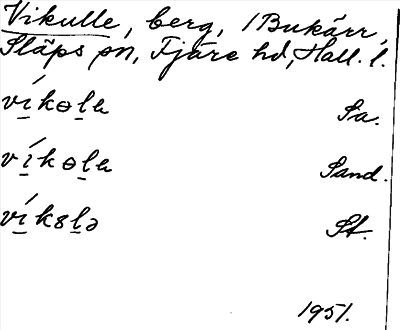 Vikulle, berg, /Bukärr,
Släps sn, Fjäre hd, Hall. l.
víkɵlɐ Sa.
víkɵlɐ Sand.
víkȣlə St.
1951.